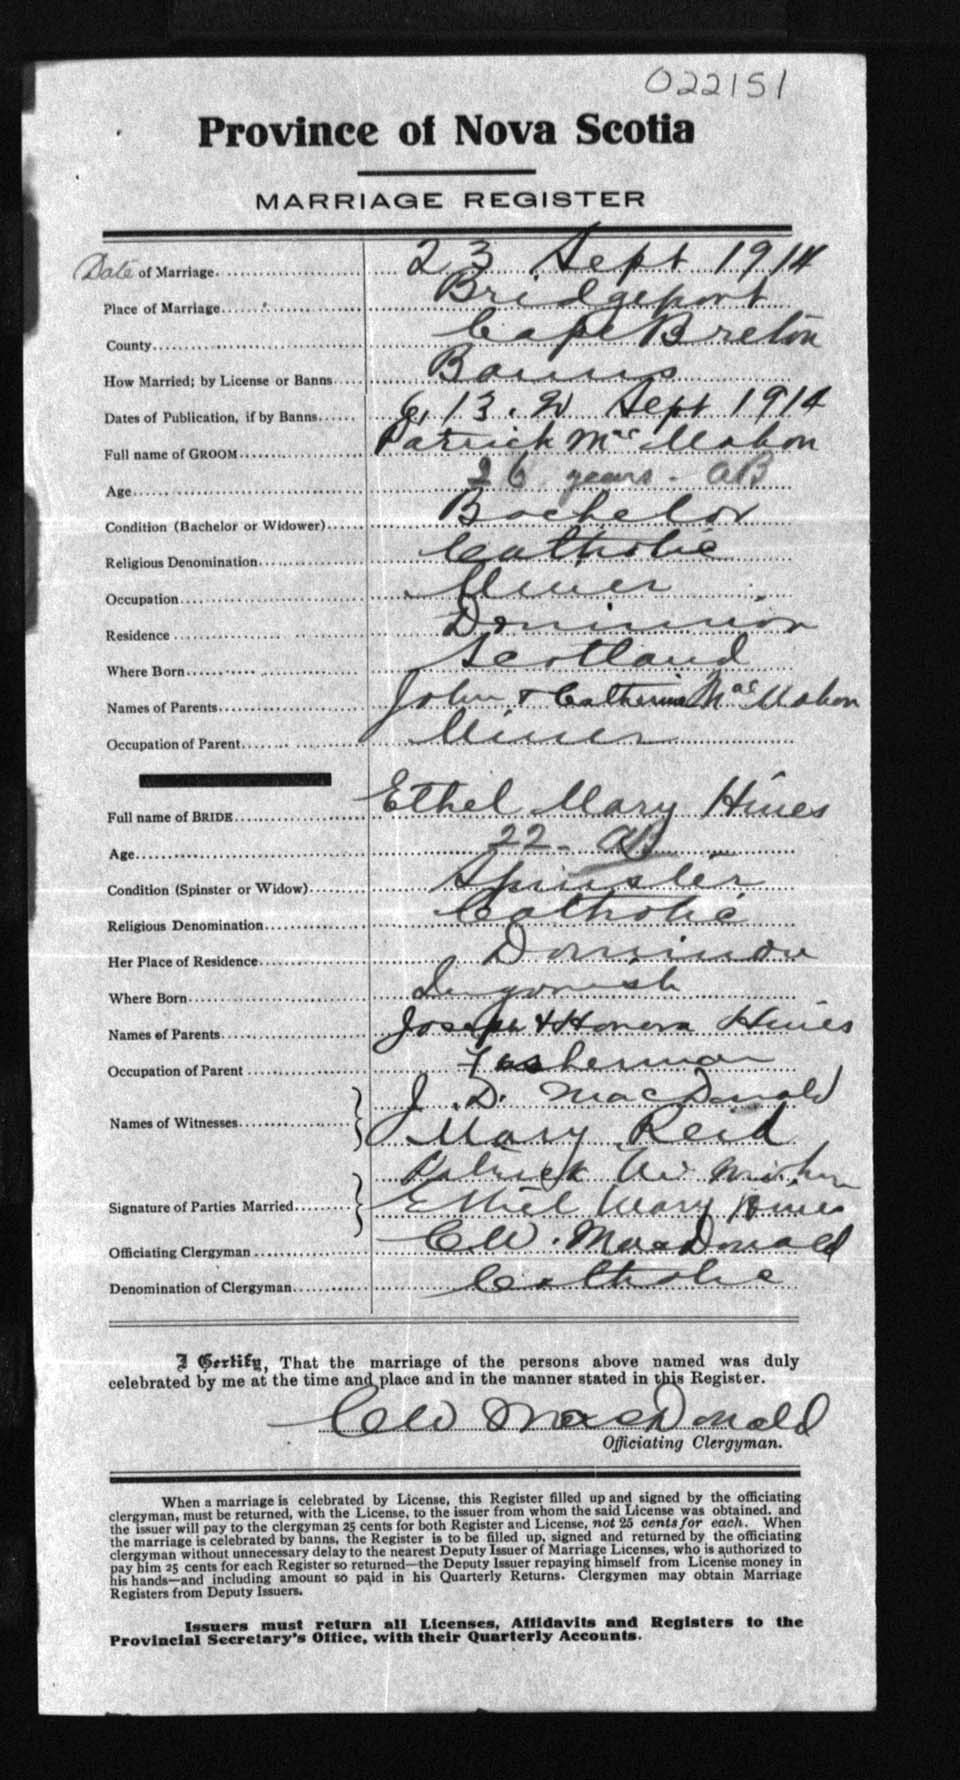 022151
Province of Nova Scotia
MARRIAGE REGISTER
Date of Marriage 23 Sept 1914
Place of Marriage Bridgeport
County Cape Breton
How Married; by License or Banns Banns
Dates of Publication, if by Banns 6, 13, 20 Sept 1914
Full name of GROOM Patrick Mac Mahon
Age 26 years - AB
Condition (Bachelor or Widower) Bachelor
Religious Denomination Catholic
Occupation Miner
Residence Dominion
Where Born Scotland
Names of Parents John & Catherine Mac Mahon
Occupation of Parent Miner
Full name of BRIDE Ethel Mary Hines
Age 22 - AB
Condition (Spinster or Widow) Spinster
Religious Denomination Catholic
Her Place of Residence Dominion
Where Born Ingonish
Names of Parents Joseph & Honora Hines
Occupation of Parent Fisherman
Names of Witnesses J. D. MacDonald
Mary Reid
Patrick
Signature of Parties Married Ethel Mary Hines
Officiating Clergyman C W. MacDonald
Denomination of Clergyman Catholic
I Certify, That the marriage of the persons above named was duly
celebrated by me at the time and place and in the manner stated in this Register.
C W MacDonald
Officiating Clergyman.
When a marriage is celebrated by License, this Register filled up and signed by the officiating
clergyman, must be returned, with the License, to the issuer from whom the said License was obtained, and
the issuer will pay to the clergyman 25 cents for both Register and License, not 25 cents for each. When
the marriage is celebrated by banns, the Register is to be filled up, signed and returned by the officiating
clergyman without unnecessary delay to the nearest Deputy Issuer of Marriage Licenses, who is authorized to
pay him 25 cents for each Register so returned—the Deputy Issuer repaying himself from License money in
his hands—and including amount so paid in his Quarterly Returns. Clergymen may obtain Marriage
Registers from Deputy Issuers.
Issuers must return all Licenses, Affidavits and Registers to the
Provincial Secretary's Office, with their Quarterly Accounts.